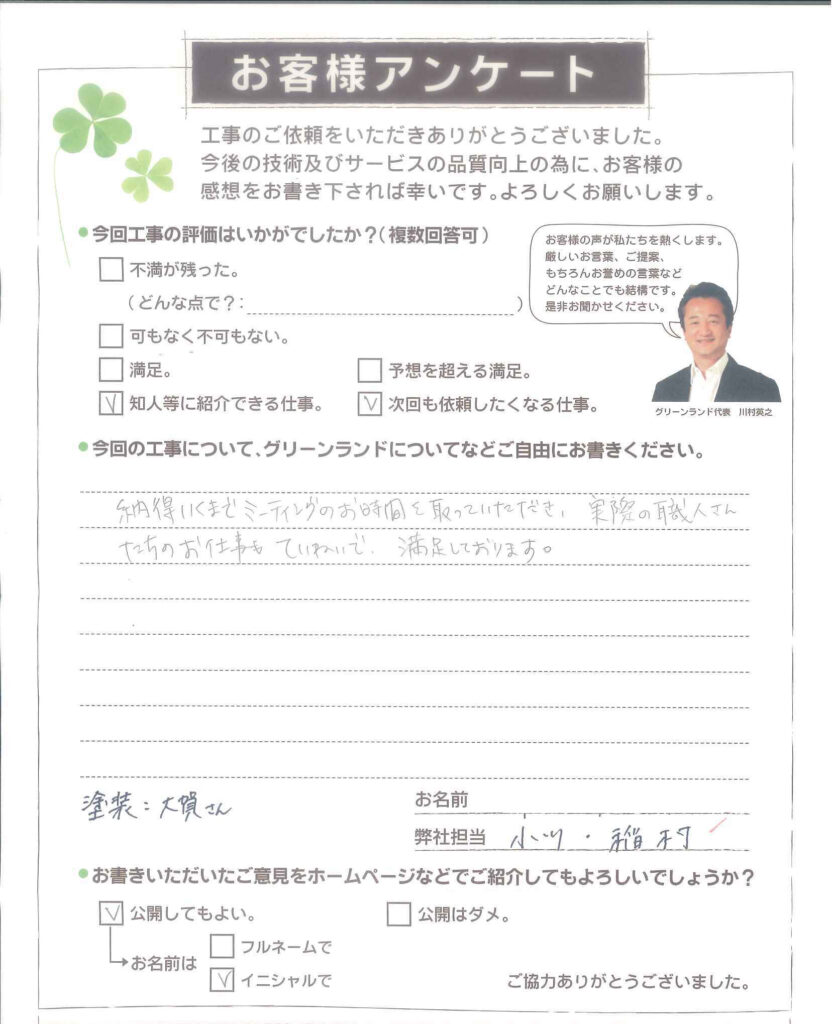 お客様アンケート
工事のご依頼をいただきありがとうございました。
今後の技術及びサービスの品質向上の為に、お客様の
感想をお書き下されば幸いです。よろしくお願いします。
今回工事の評価はいかがでしたか？（複数回答可）
不満が残った。
（どんな点で？：　　　　）
可もなく不可もない。
満足。
予想を超える満足。
知人等に紹介できる仕事。
次回も依頼したくなる仕事。
お客様の声が私たちを熱くします。
厳しいお言葉、ご提案、
もちろんお誉めの言葉など
どんなことでも結構です。
是非お聞かせください。
グリーンランド代表　川村英之
今回の工事について、グリーンランドについてなどご自由にお書きください。
納得いくまでミーティングのお時間を取っていただき、実際の職人さん
たちのお仕事もていねいで、満足しております。
塗装：大賀さん
お名前
弊社担当　小川・稲村
お書きいただいたご意見をホームページなどでご紹介してもよろしいでしょうか？
公開してもよい。
公開はダメ。
お名前は
フルネームで
イニシャルで
ご協力ありがとうございました。